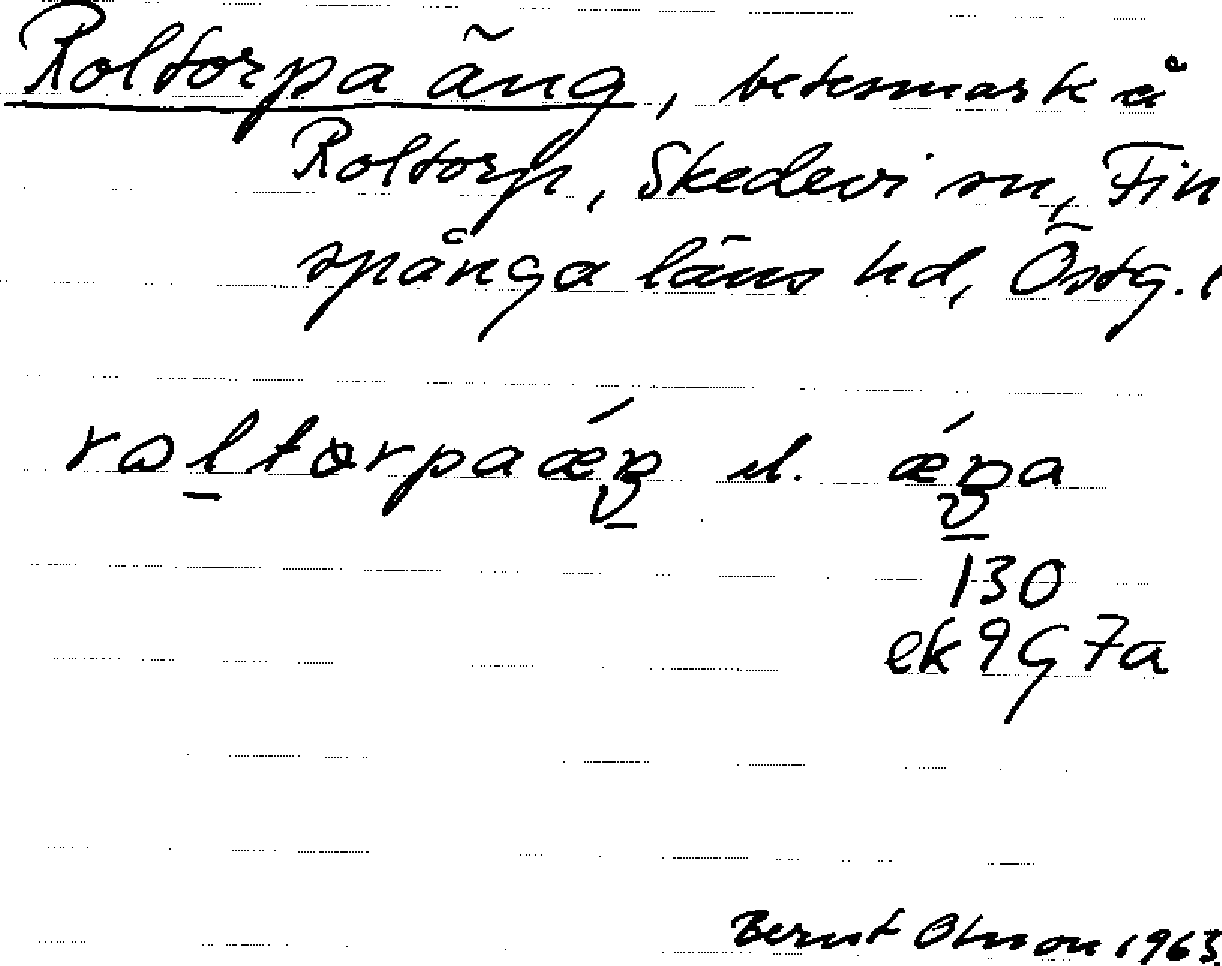 Roltorpa äng, betesmark å
Roltorp, Skedevi sn, Fin
spånga läns hd, Östg. l
roltorpaǽŋ el. ǽŋa
130
ek 9G 7a
Bernt Olsson 1963